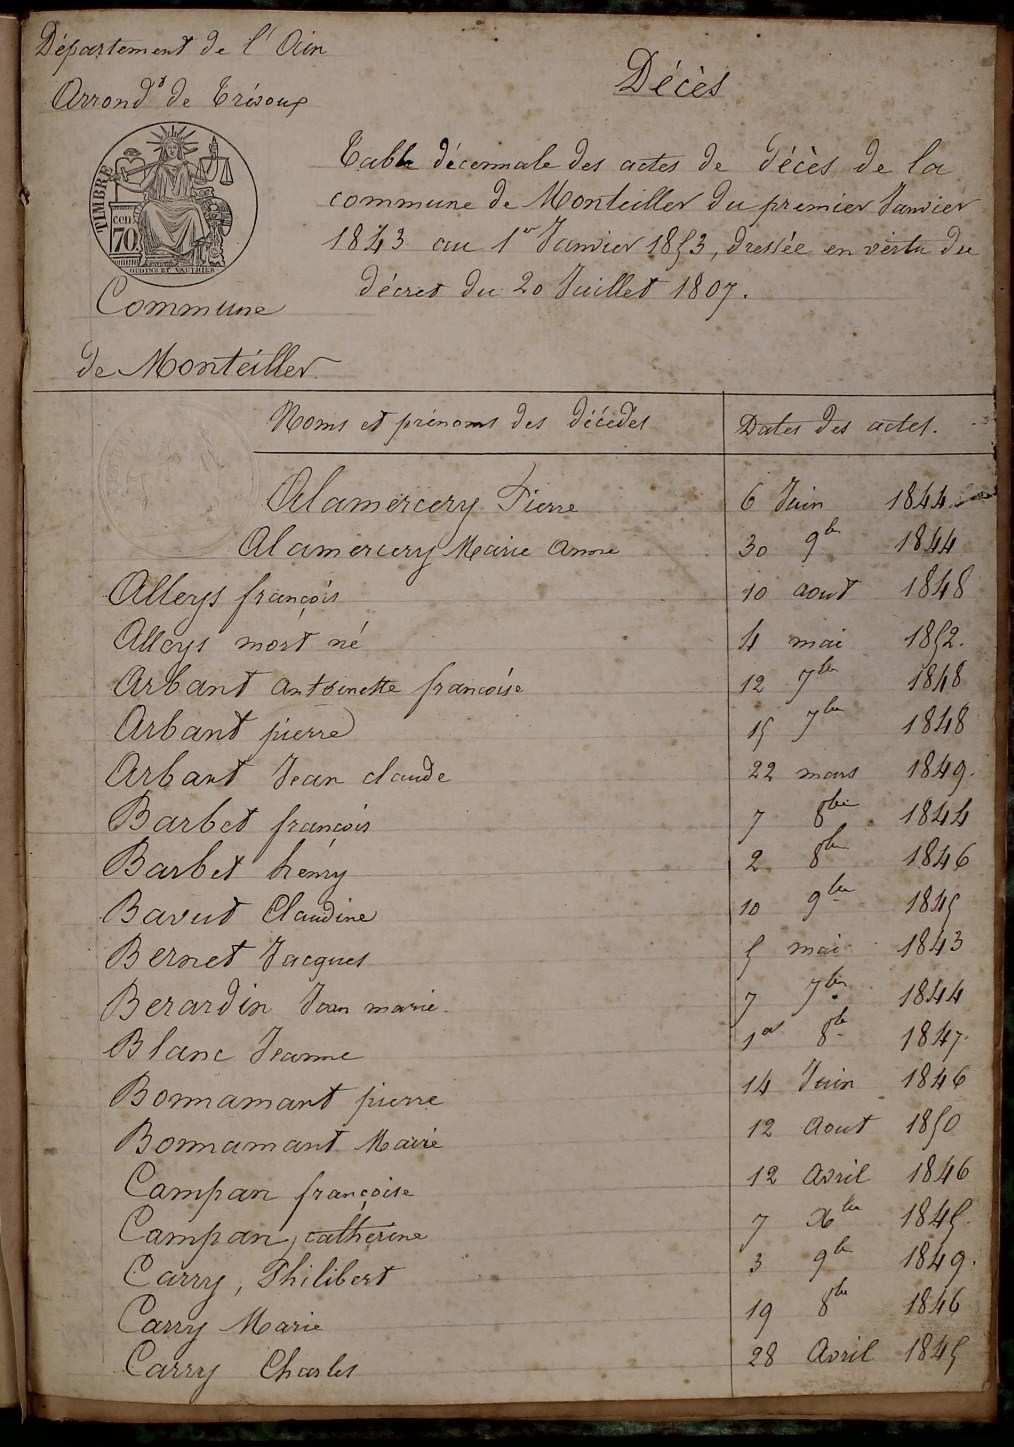 Département de l'Ain
Arrondt de Trévoux
Décès
TIMBRE
cen
70
OUDINÉ ET VAUTHIER
Table décennale des actes de décès de la
commune de Monteiller du premier Janvier
1843 au 1er Janvier 1853, dressée en vertu du
décret du 20 Juillet 1807.
Commune
de Monteiller
Noms et prénoms des décédés Dates des actes.
Alamercery Pierre 6 Juin 1844
Alamercery Marie Anne 30 9bre 1844
Alleys françois 10 aout 1848
Alleys mort né 4 mai 1852.
Arbant antoinette françoise 12 7bre 1848
Arbant pierre 15 7bre 1848
Arbant Jean claude 22 mars 1849.
Barbet françois 7 8bre 1844
Barbet henry 2 8bre 1846
Bavut Claudine 10 9bre 1845
Bernet Jacques 5 mai 1843
Berardin Jean marie 7 7bre 1844
Blanc Jeanne 1er 8bre 1847.
Bonnamant pierre 14 Juin 1846
Bonnamant Marie 12 Aout 1850
Campan françoise 12 Avril 1846
Campan, catherine 7 Xbre 1845.
Carry, Philibert 3 9bre 1849.
Carry Marie 19 8bre 1846
Carry Charles 28 Avril 1845